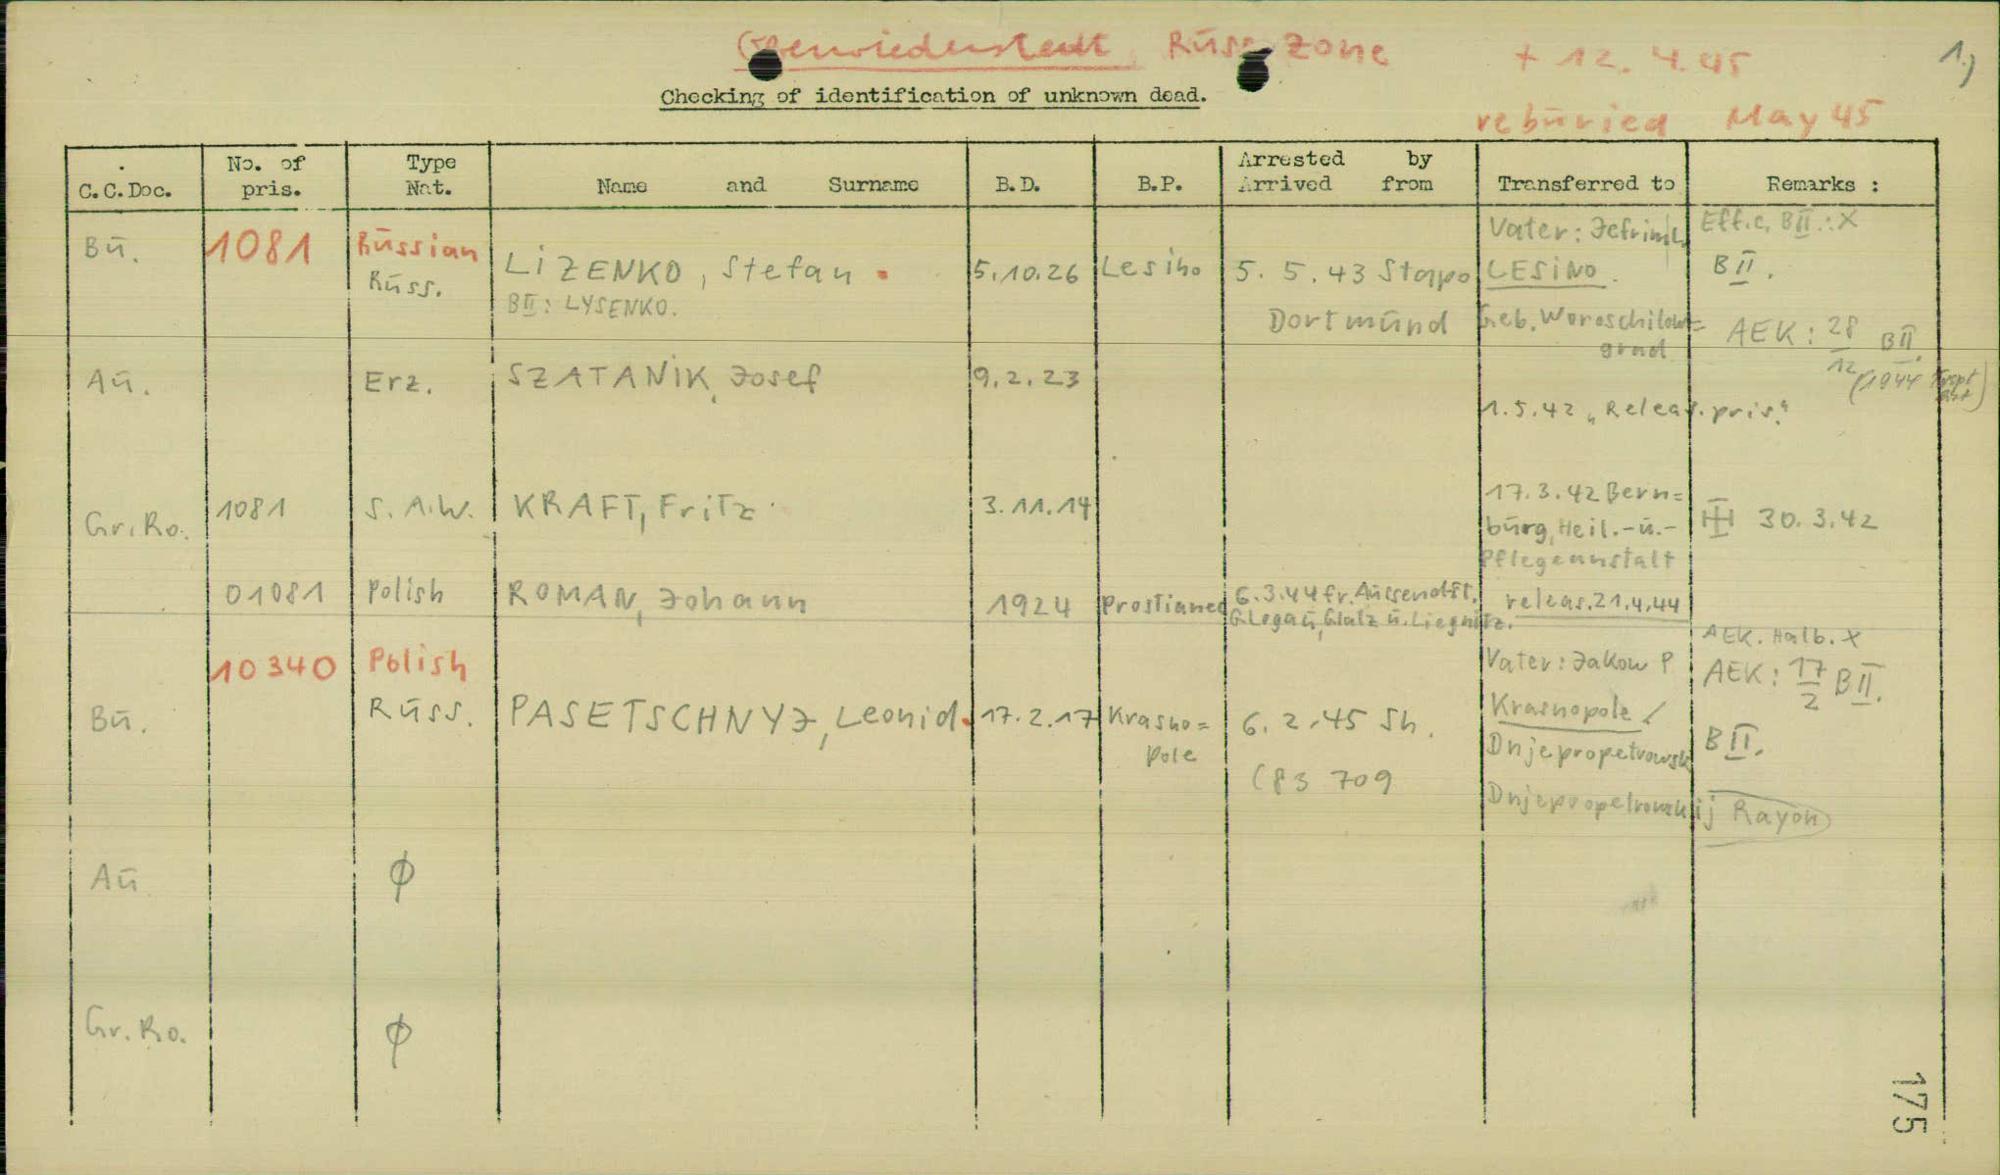 Oberwiederstedt, Russ. Zone + 12. 4. 45 1.)
Checking of identification of unknown dead.
reburied May 45
C.C.Doc. No. of pris. Type Nat. Name and Surname B.D. B.P. Arrested by Arrived from Transferred to Remarks :
Bū. 1081 Rūssian Vater: Jefrim L. Eff.c. BII.: X
Rūss. LiZENKO, Stefan 5.10.26 Lesino 5. 5. 43 Stapo LESiNO. BII.
BII: LYSENKO. Dortmūnd Geb. Woroschilow= AEK: 28/12 BII.
grad (1944
Aū. Erz. SZATANiK, Josef 9.2.23
1.5.42 „Releas. pris."
Gr.Ro. 1081 S.A.W. KRAFT, Fritz 3.11.14 17.3.42 Bern= 30.3.42
būrg, Heil.-ū.-
Pflegeanstalt
01081 Polish ROMAN, Johann 1924 Prostianec 6.3.44 fr. Aūssendst. releas. 21.4.44
Glogaū, Glatz ū. Liegnitz.
AEK. Halb. X
10340 Polish Vater: Jakow P AEK: 17/2 BII.
Bū. Rūss. PASETSCHNYJ, Leonid 17.2.17 Krasno= 6. 2. 45 Sh. Krasnopole
pole Dnjepropetrowsk BII.
(83 709
Dnjepropetrowskij Rayon
Aū ϕ
Gr. Ro. ϕ
175